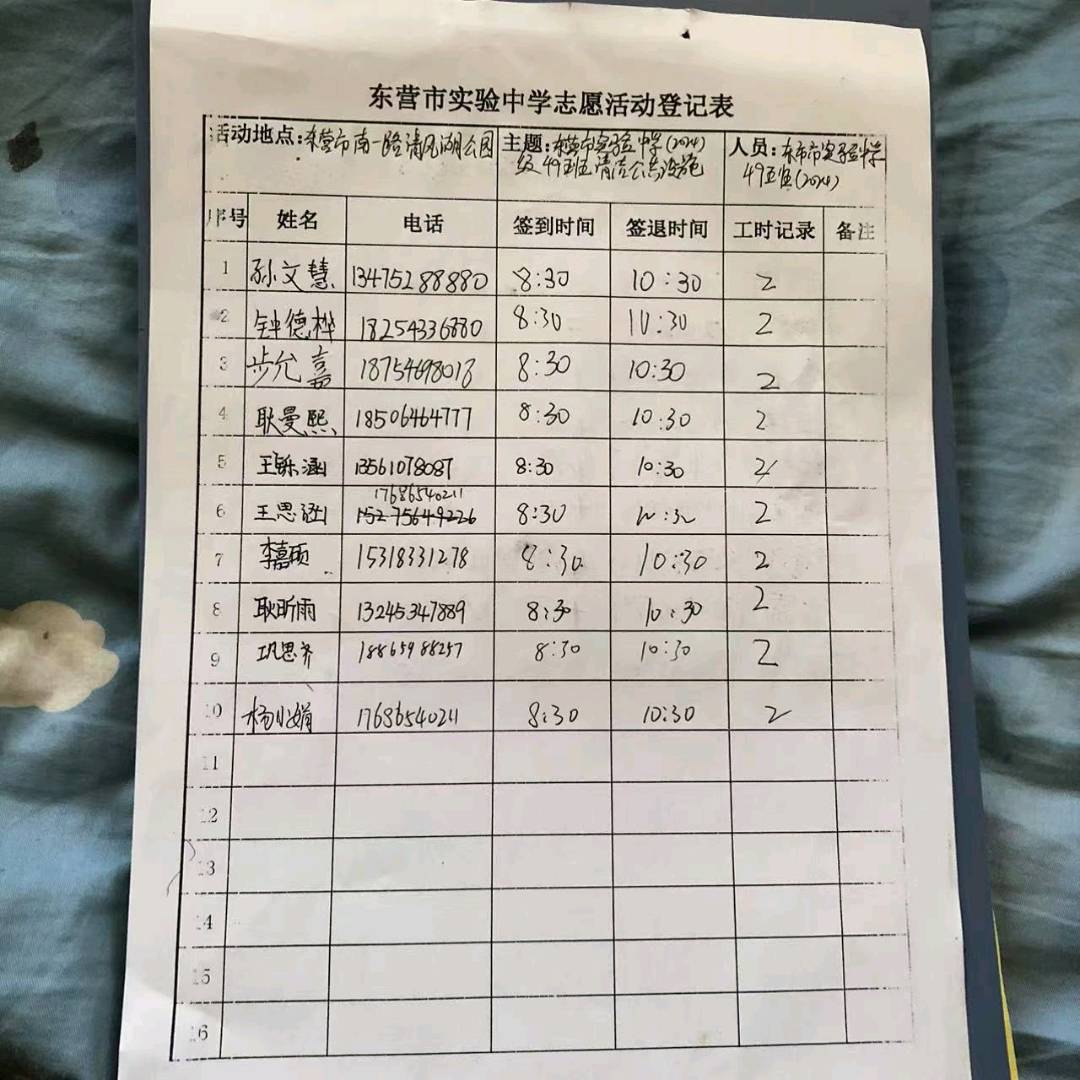 东营市实验中学志愿活动登记表
活动地点:东营市南一路清风湖公园 主题:东营市实验中学(2024)级49班清洁公共设施 人员:东市市实验中学49班(2024)
序号 姓名 电话 签到时间 签退时间 工时记录 备注
1 孙文慧 13475288880 8:30 10:30 2
2 钟德桦 18254336880 8:30 10:30 2
3 步允嘉 18754698018 8:30 10:30 2
4 耿曼熙 18506464777 8:30 10:30 2
5 王鑠涵 13561078087 8:30 10:30 2
17686540211
6 王思涵 15275649226 8:30 10:30 2
7 李嘉硕 15318331278 8:30 10:30 2
8 耿昕雨 13245347889 8:30 10:30 2
9 巩思齐 18865988257 8:30 10:30 2
10 杨小娟 17686540211 8:30 10:30 2
11
12
13
14
15
16